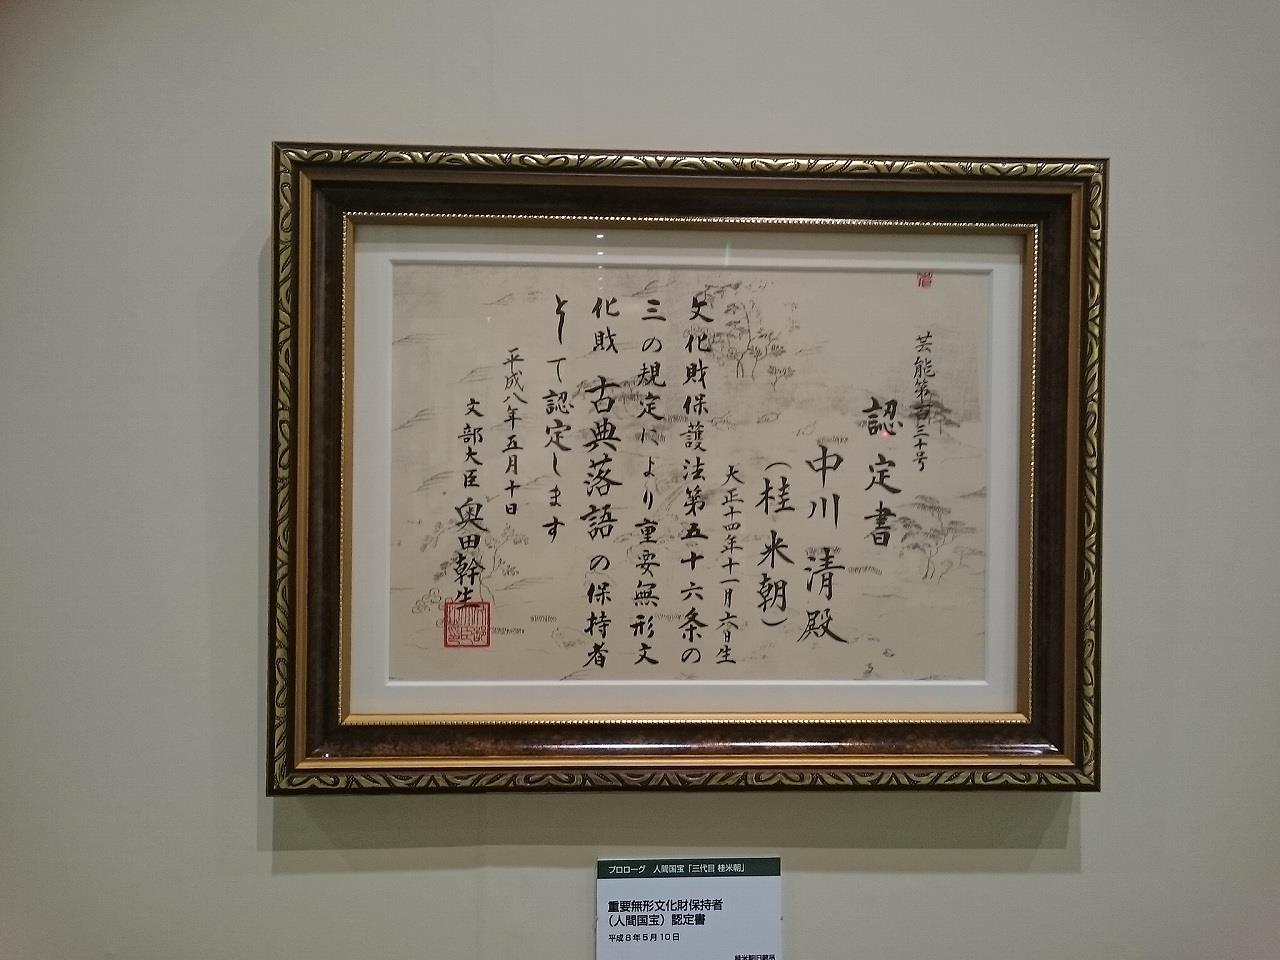 芸能第百三十号
認定書
中川 清殿
(桂 米朝)
大正十四年十一月六日生
文化財保護法第五十六条の
三の規定により重要無形文
化財 古典落語の保持者
として認定します
平成八年五月十日
文部大臣 奥田幹生
プロローグ 人間国宝「三代目 桂米朝」
重要無形文化財保持者
(人間国宝)認定書
平成8年5月10日
桂米朝旧蔵品